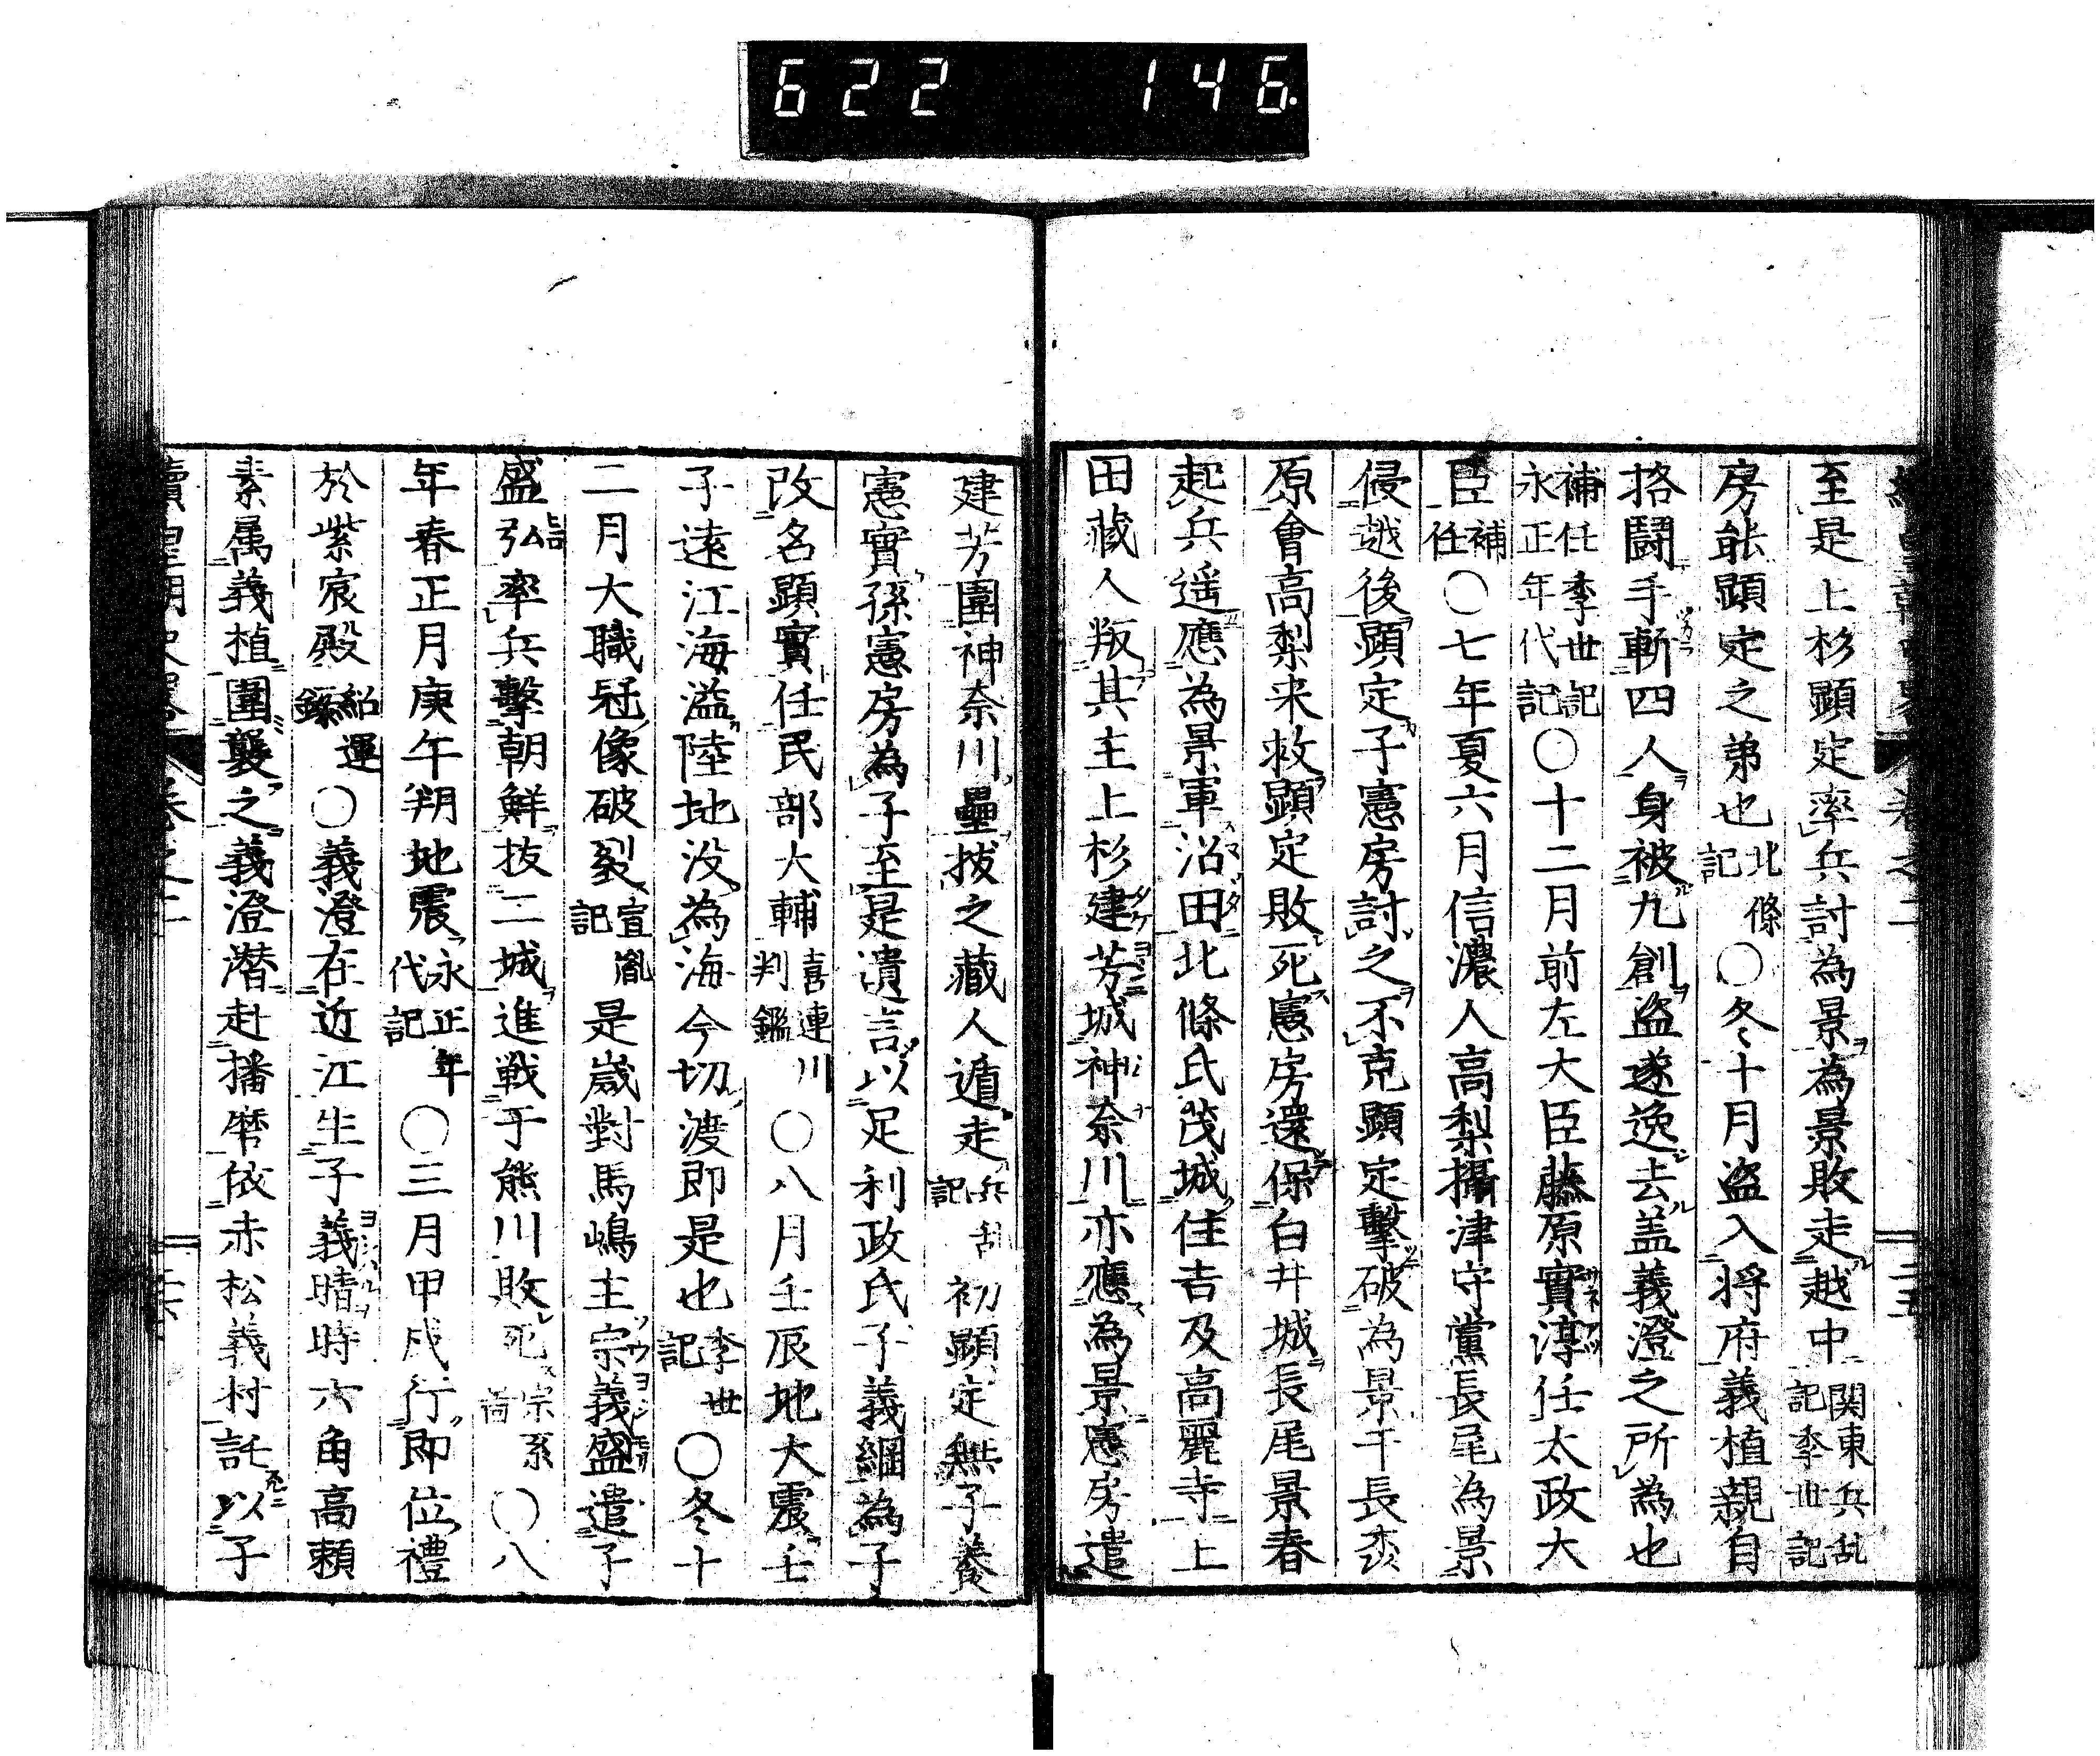 622 146.
至是上杉顕定率兵討為景為景敗走越中関東兵乱記季世記
房能顕定之弟也北條記〇冬十月盗入将府義植親自
挌闘手斬四人身被九創盗遂逸去盖義澄之所為也
補任季世記永正年代記〇十二月前左大臣藤原實淳任太政大
臣補任〇七年夏六月信濃人高梨攝津守黨長尾為景
侵越後顕定子憲房討之不克顕定撃破為景于長森
原會高梨来救顕定敗死憲房還保白井城長尾景春
起兵遥應為景軍沼田北條氏茂城住吉及高麗寺上
田蔵人叛其主上杉建芳城神奈川亦應為景憲房遣
建芳圍神奈川壘拔之蔵人遁走兵乱記初顕定無子養
憲實孫憲房為子至是遺言以足利政氏子義綱為子
改名顕實任民部大輔喜連川判鑑〇八月壬辰地大震壬
子遠江海溢陸地没為海今切渡即是也季世記〇冬十
二月大職冠像破裂宣胤記是歳對馬嶋主宗義盛遣子
盛弘率兵撃朝鮮抜二城進戦于熊川敗死宗系〇八
年春正月庚午朔地震永正年代記〇三月甲戌行即位禮
於紫宸殿紹運録〇義澄在近江生子義晴時六角高頼
素属義植圍襲之義澄潜赴播磨依赤松義村託以子